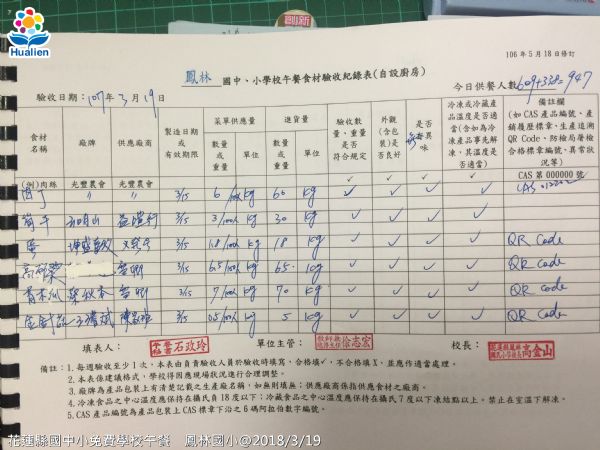 Hualien
106年5月18日修訂
鳳林 國中、小學校午餐食材驗收紀錄表(自設廚房)
驗收日期：107年3月19日
今日供餐人數 609+338=947
食材名稱 廠牌 供應廠商 製造日期或有效期限 菜單供應量 數量或重量 單位 進貨量 數量或重量 單位 驗收數量、重量是否符合規定 外觀(含包裝)是否良好 是否異味 冷凍或冷藏產品溫度是否適當(含如為冷凍產品事先解凍，其溫度是否適當) 備註欄(如CAS產品編號、產銷履歷標章、生產追溯QR Code、防檢局屠檢合格標章編號、異常狀況等)
(例)肉絲 光豐農會 光豐農會 ✓ ✓ ✓ ✓ CAS第000000號
肉丁 〃 〃 3/15 6/100人 kg 60 kg ✓ ✓ ✓ ✓ CAS
3/15 3/100人 kg 30 kg ✓ ✓ ✓ ✓
蛋 3/15 1.8/100人 kg 18 kg ✓ ✓ ✓ ✓ QR Code
高麗菜 3/15 6.5/100人 kg 65 kg ✓ ✓ ✓ ✓ QR Code
青木瓜 3/15 7/100人 kg 70 kg ✓ ✓ ✓ ✓ QR Code
金針菇 3/15 0.5/100人 kg 5 kg ✓ ✓ ✓ ✓ QR Code
填表人： 石玫玲 單位主管： 徐志宏 校長： 向金山
備註：1.每週驗收至少1次，本表由負責驗收人員於驗收時填寫，合格填✓，不合格填X，並應作適當處理。
2.本表係建議格式，學校得因應現場狀況進行合理調整。
3.廠牌為產品包裝上有清楚記載之生產廠名稱，如無則填無；供應廠商係指供應食材之廠商。
4.冷凍食品之中心溫度應保持在攝氏負18度以下；冷藏食品之中心溫度應保持在攝氏7度以下凍結點以上。禁止在室溫下解凍。
5.CAS產品編號為產品包裝上CAS標章下沿之6碼阿拉伯數字編號。
花蓮縣國中小免費學校午餐 鳳林國小@2018/3/19